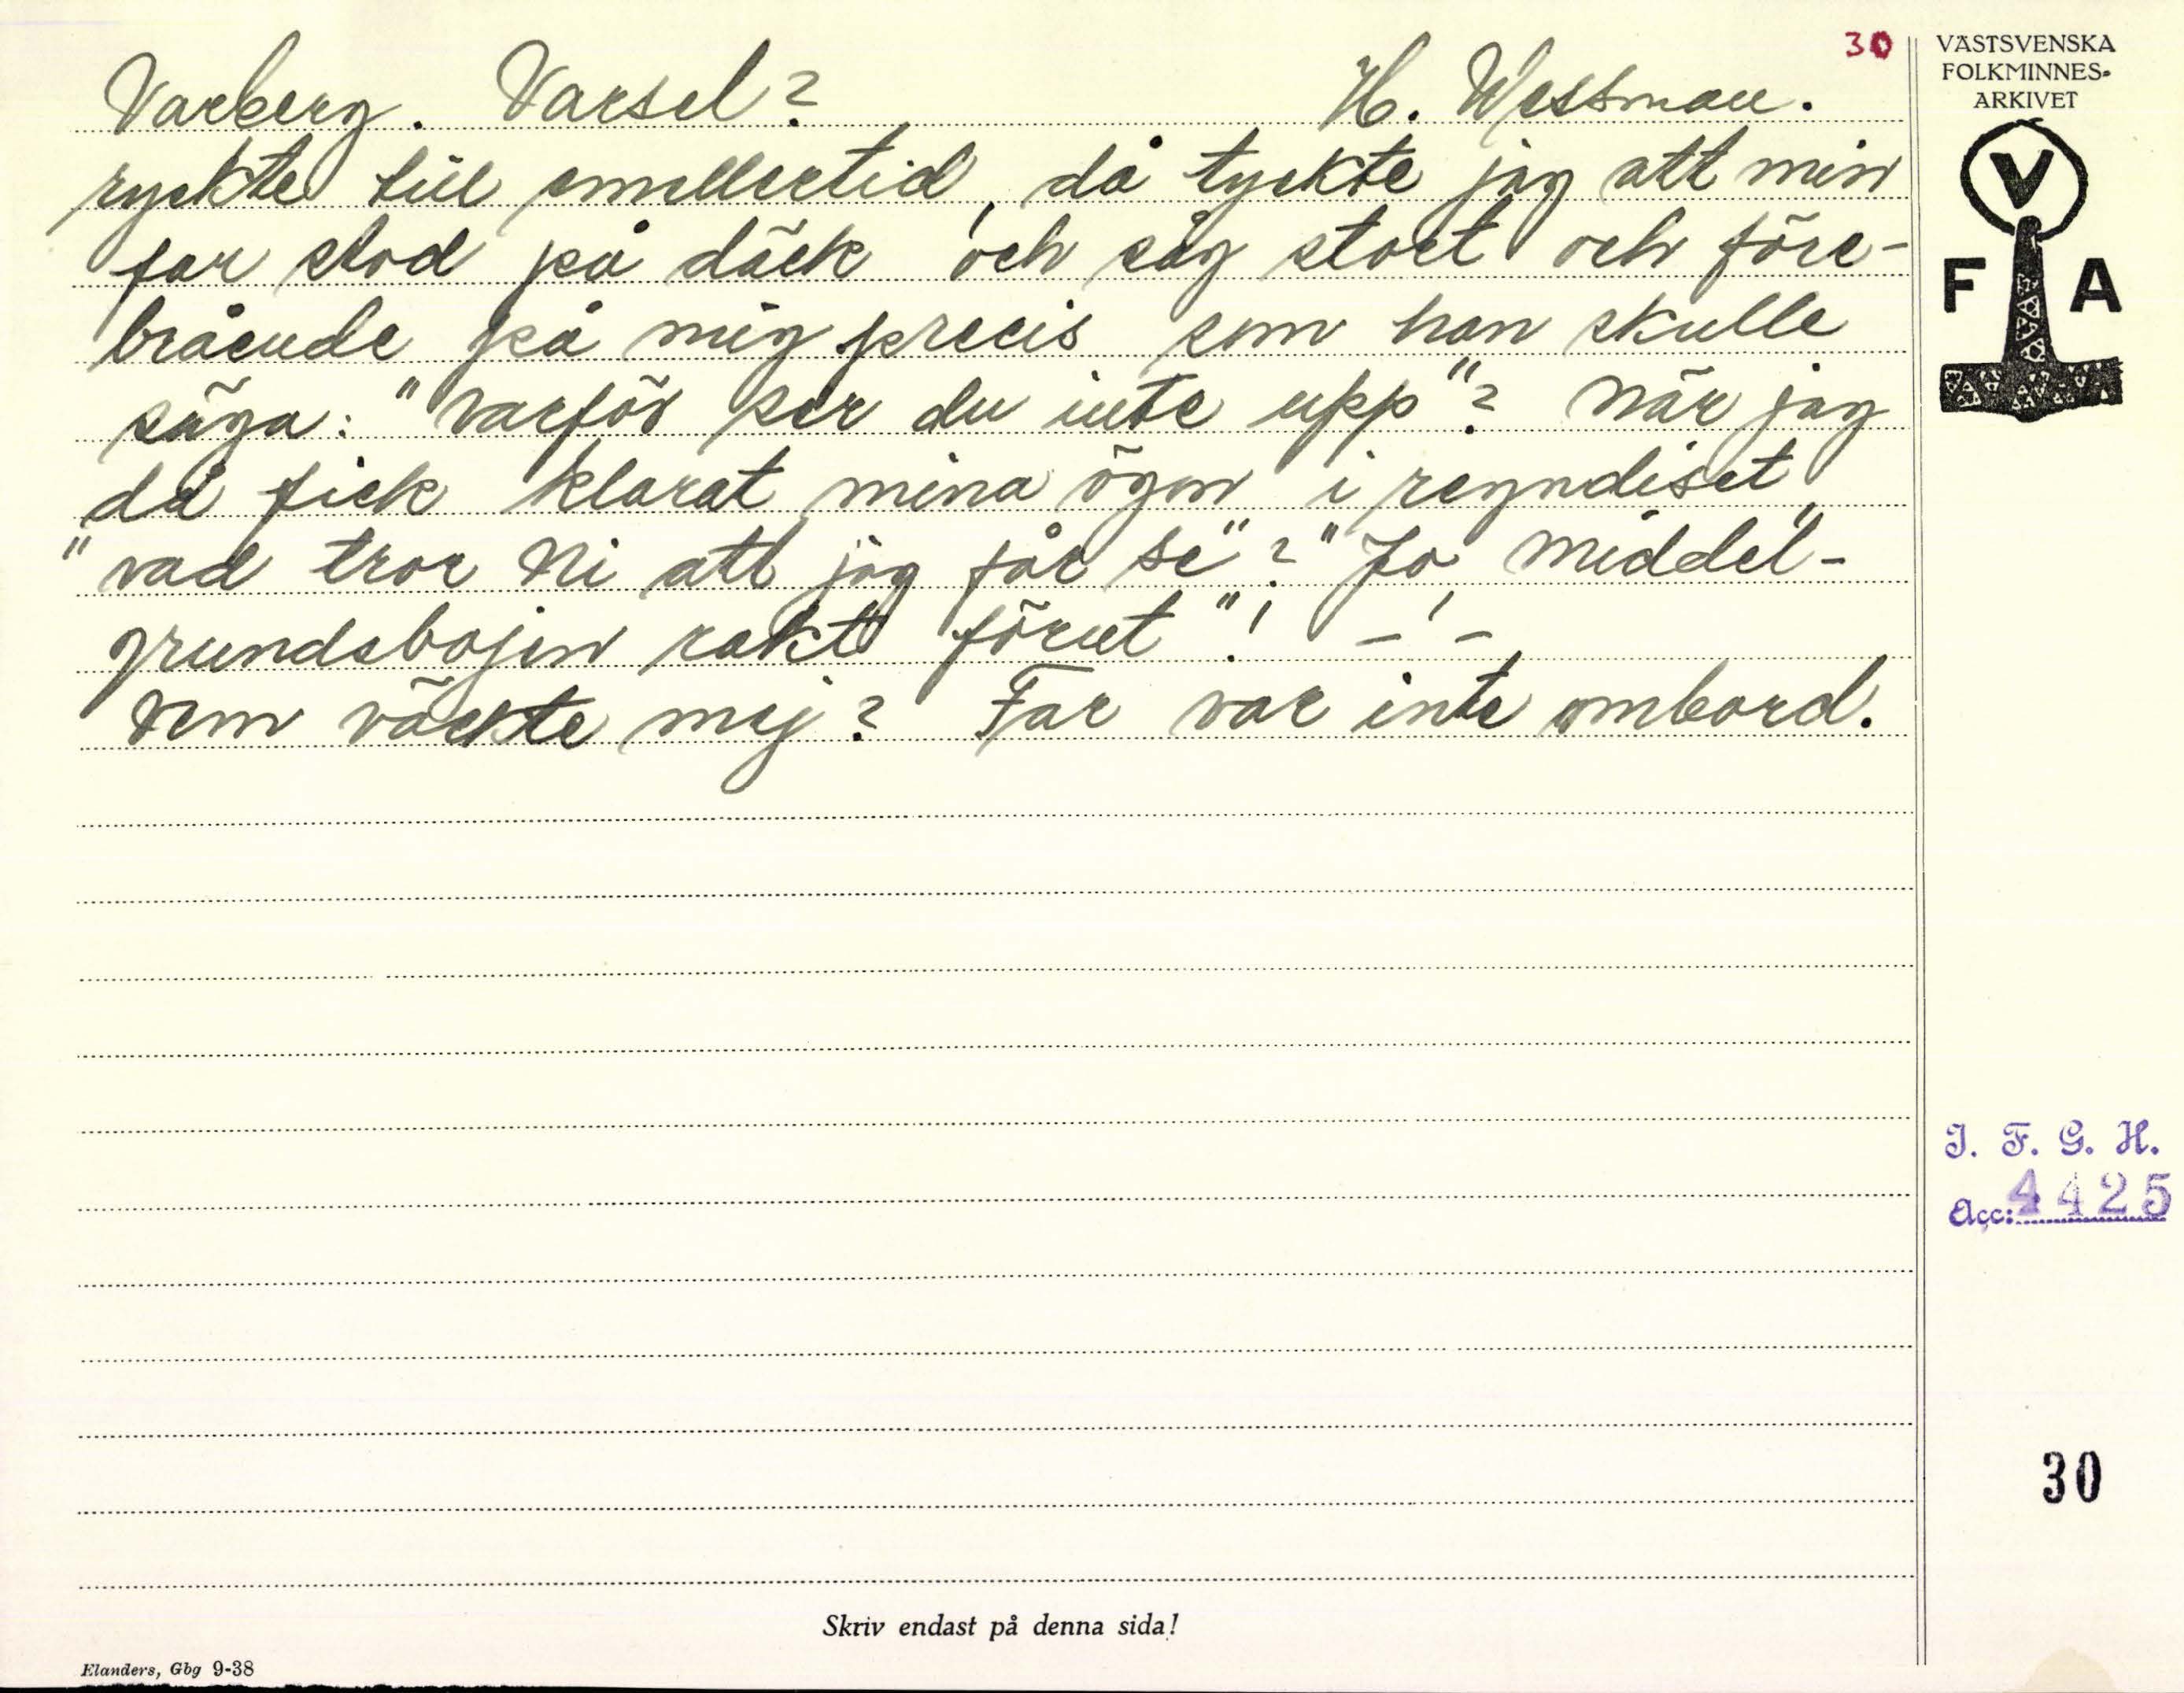 30
Varberg. Varsel? H. Wessman.
ryckte till emellertid, då tyckte jag att min
far stod på däck och såg stort och före-
bråeude på mig precis som han skulle
säga: "varför ser du inte upp"? När jag
då fick klarat mina ögon i regndiset
"vad tror Ni att jag får se"? "Jo, Middel-
grundsbojen rakt förut"! - ' -
Vem väckte mej? Far var inte ombord.
VÄSTSVENSKA
FOLKMINNES-
ARKIVET
V
F A
I. F. G. H.
Acc: 4425
30
Skriv endast på denna sida!
Elanders, Gbg 9-38